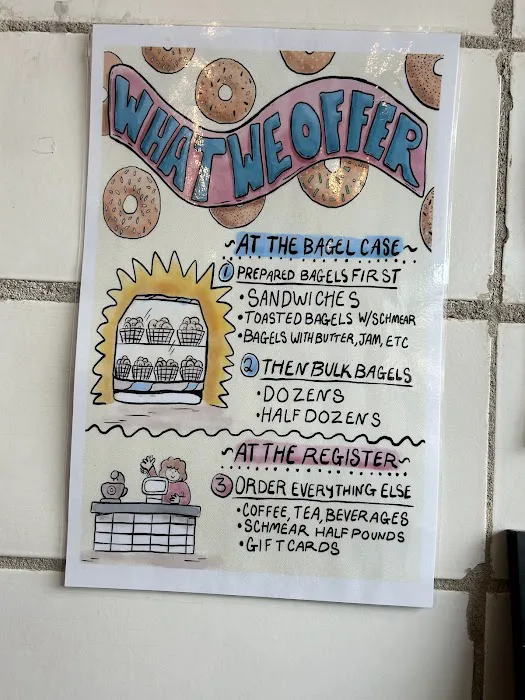 WHAT WE OFFER
~AT THE BAGEL CASE~
1 PREPARED BAGELS FIRST
•SANDWICHES
•TOASTED BAGELS W/SCHMEAR
•BAGELS WITH BUTTER, JAM, ETC
2 THEN BULK BAGELS
•DOZENS
•HALF DOZENS
~AT THE REGISTER~
3 ORDER EVERYTHING ELSE
•COFFEE, TEA, BEVERAGES
•SCHMEAR HALF POUNDS
•GIFT CARDS